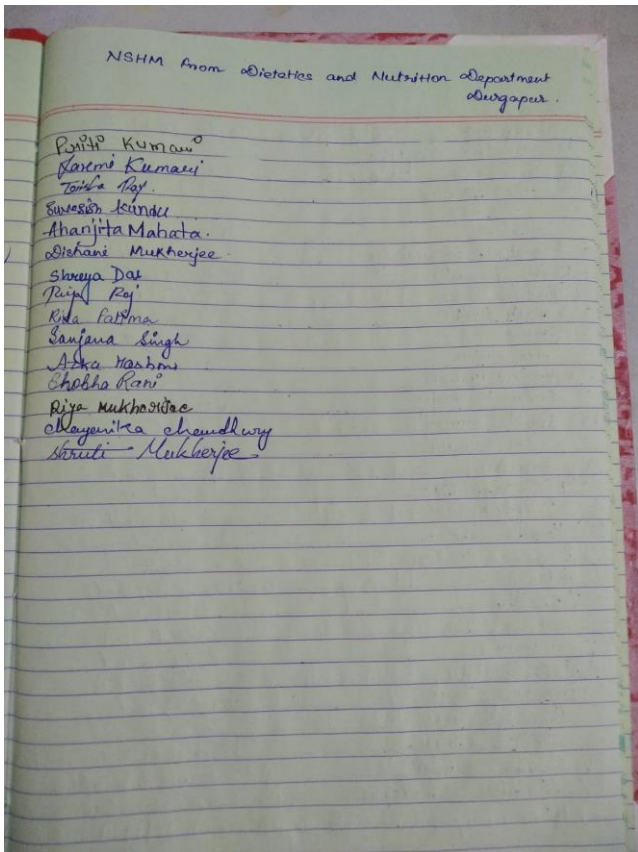 NSHM from Dietetics and Nutrition Department
Durgapur.
Priti Kumari
Laxmi Kumari
Tanisha Roy.
Suvasish Kundu
Ahanjita Mahata.
Dishani Mukherjee
Shreya Das
Priya Roy
Rida Fatima
Sanjana Singh
Azka Hashmi
Shobha Rani
Riya Mukharjee
Chayanika Chowdhury
Shruti Mukherjee